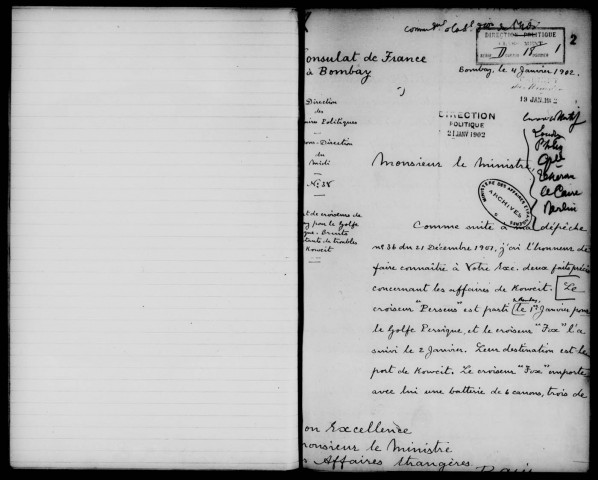 2
DIRECTION POLITIQUE
Consulat de France
à Bombay
Bombay, le 4 Janvier 1902.
Direction
des
Politiques
Sous-Direction
du
Midi
No. 38
19 JANV
DIRECTION
POLITIQUE
21 JANV 1902
Londres
Le Caire
Berlin
MINISTÈRE DES AFFAIRES ÉTRANGÈRES
ARCHIVES
Monsieur le Ministre,
de croiseurs de
pour le Golfe
Bruits
de troubles
Koweit
Comme suite à ma dépêche
no. 36 du 21 Décembre 1901, j'ai l'honneur de
faire connaître à Votre Exc. deux faits précis
concernant les affaires de Koweit. Le
croiseur "Perseus" est parti le 1er Janvier pour
le Golfe Persique, et le croiseur "Fox" l'a
suivi le 2 Janvier. Leur destination est le
port de Koweit. Le croiseur "Fox" emporte
avec lui une batterie de 6 canons, trois de
Son Excellence
Monsieur le Ministre
Affaires étrangères
Paris